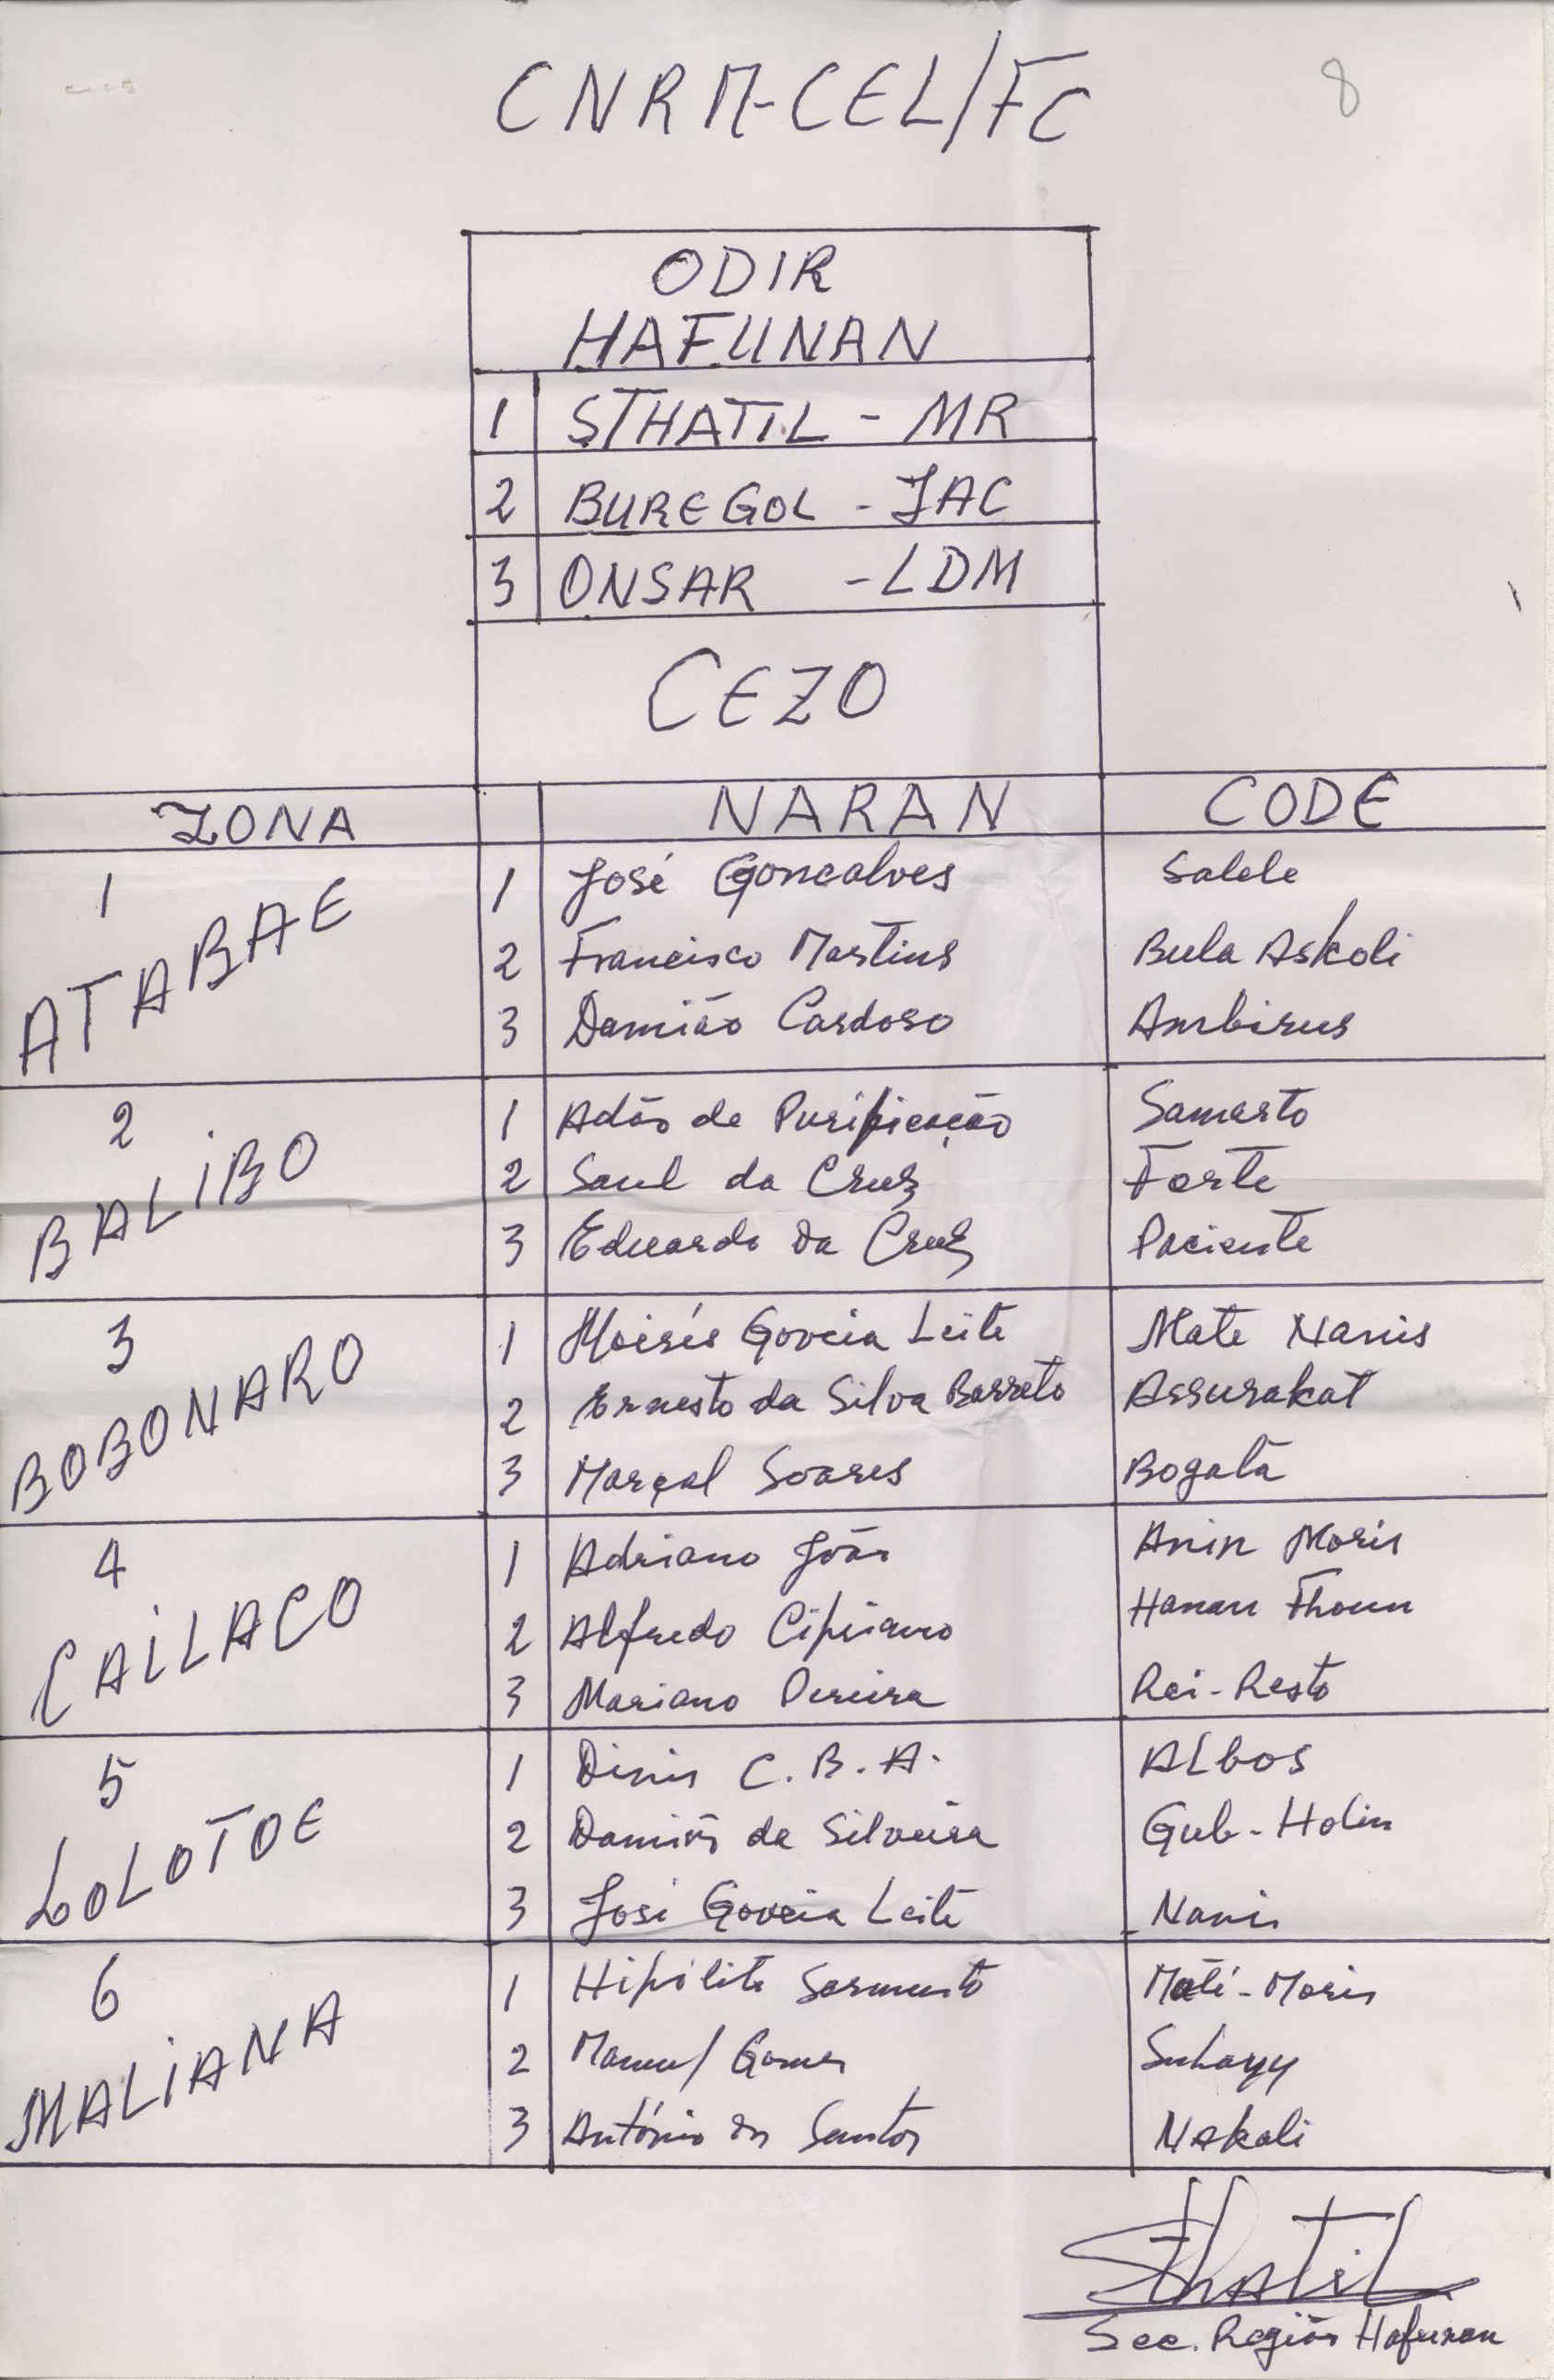 CNRM-CEL/FC
8
ODIR
HAFUNAN
1 STHATIL - MR
2 BUREGOL - JAC
3 ONSAR - LDM
CEZO
ZONA NARAN CODE
1 ATABAE
1 José Goncalves Salele
2 Francisco Martins Bula Askoli
3 Damião Cardoso Ambirus
2 BALIBO
1 Adão da Purificação Samarto
2 Saul da Cruz Forte
3 Eduardo da Cruz Paciente
3 BOBONARO
1 Moisés Goveia Leite Mate Nanis
2 Ernesto da Silva Barreto Assurakat
3 Marçal Soares Bogatã
4 CAILACO
1 Adriano João Anin Moris
2 Alfredo Cipriano Hanan Fhoun
3 Mariano Pereira Rei-Resto
5 LOLOTOE
1 Dinis C. B. A. ALbos
2 Damião da Silveira Gub-Holin
3 José Goveia Leite Nanis
6 MALIANA
1 Hipólito Sarmento Mati-Moris
2 Manuel Gomes
3 António dos Santos Nakali
Sthatil
Sec. Região Hafunan